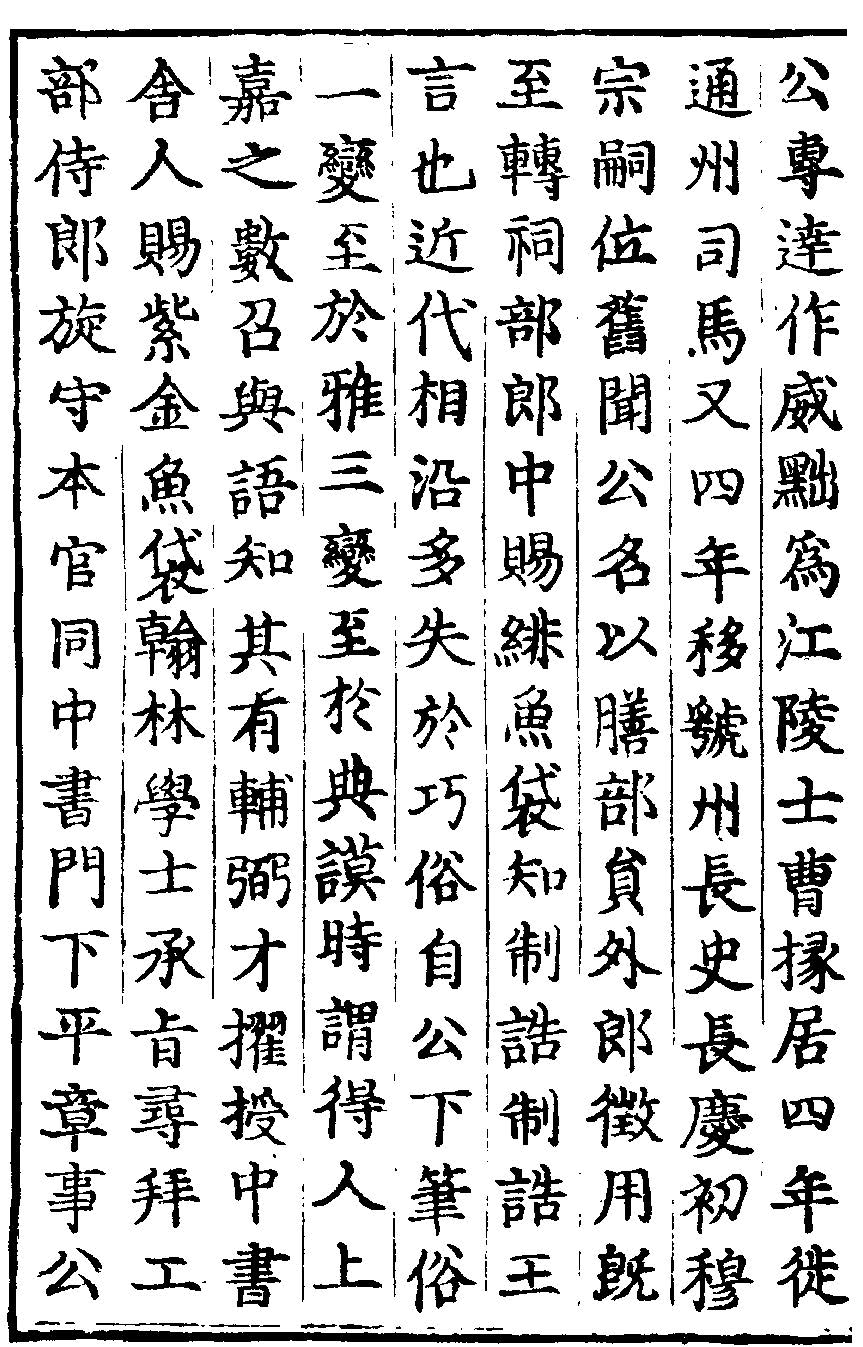 公專逹作威黜爲江陵士曹掾居四年徙
通州司馬又四年移虢州長史長慶初穆
宗嗣位舊聞公名以膳部貟外郎徵用旣
至轉祠部郎中賜緋魚袋知制誥制誥王
言也近代相沿多失於巧俗自公下筆俗
一變至於雅三變至於典謨時謂得人上
嘉之數召與語知其有輔弼才擢授中書
舎人賜紫金魚袋翰林學士承㫖尋拜工
部侍郎旋守本官同中書門下平章事公